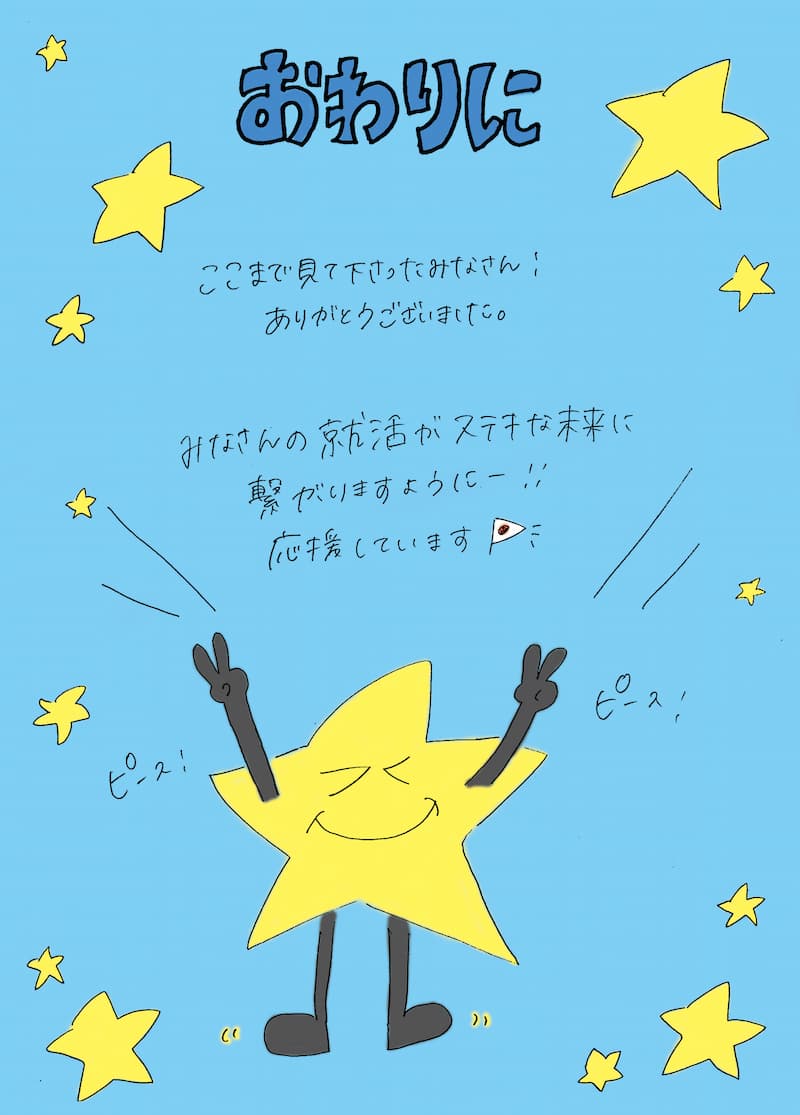 おわりに
ここまで見て下さったみなさん!
ありがとうございました。
みなさんの就活がステキな未来に
繋がりますようにー!!
応援しています
ピース!
ピース!